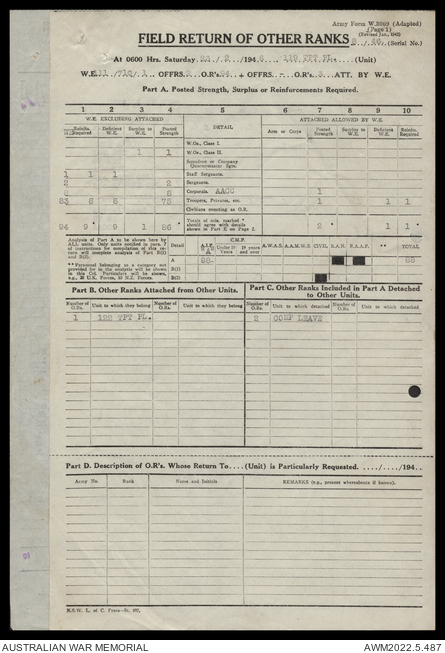 Army Form W.3069 (Adapted)
(Page 1)
(Revised Jan., 1942)
FIELD RETURN OF OTHER RANKS 8../46..(Serial No.)
At 0600 Hrs. Saturday 23/.2./194.6. 118 TPT PL...(Unit)
W.E. 11/710/.1.. OFFRS. O.R's.94.. + OFFRS..-.. O.R's..3.. ATT. BY W.E.
Part A. Posted Strength, Surplus or Reinforcements Required.
1 2 3 4 5 6 7 8 9 10
W.E. EXCLUDING ATTACHED DETAIL ATTACHED ALLOWED BY W.E.
Reinfts. Required Deficient W.E. Surplus to W.E. Posted Strength Arm or Corps Posted Strength Surplus to W.E. Deficient W.E. Reinfts. Required
W.Os., Class I.
1 1 W.Os., Class II.
Squadron or Company Quartermaster Sgts.
1 1 1 Staff Sergeants.
2 2 Sergeants.
8 Corporals. AASC 1
83 8 75 Troopers, Privates, etc. 1 1 1
Civilians counting as O.R.
94 * 9 * 1 86 * Totals of cols. marked * should agree with details shown in Part E on Page 2. 2 * 1 1 *
Analysis of Part A to be shown here by ALL units. Only units notified in para. 7 of instructions for compilation of this return will complete analysis of Part B(1) and B(2).
**Personnel belonging to a category not provided for in the analysis will be shown in this Col. Particulars will be shown, eg., 20 U.K. Forces, 10 N.Z. Forces.
Detail A.I.F. C.M.F. Under 19 Years 19 years and over A.W.A.S. A.A.M.W.S. CIVIL R.A.N. R.A.A.F. ** TOTAL
A 88 88
B(1)
B(2)
Part B. Other Ranks Attached from Other Units.
Part C. Other Ranks Included in Part A Detached to Other Units.
Number of O.Rs. Unit to which they belong Number of O.Rs. Unit to which they belong Number of O.Rs. Unit to which detached Number of O.Rs. Unit to which detached
1 128 TPT PL. 2 COMP LEAVE
Part D. Description of O.R's. Whose Return To....(Unit) is Particularly Requested. ..../..../194..
Army No. Rank Name and Initials REMARKS (e.g., present whereabouts if known).
AUSTRALIAN WAR MEMORIAL AWM2022.5.487